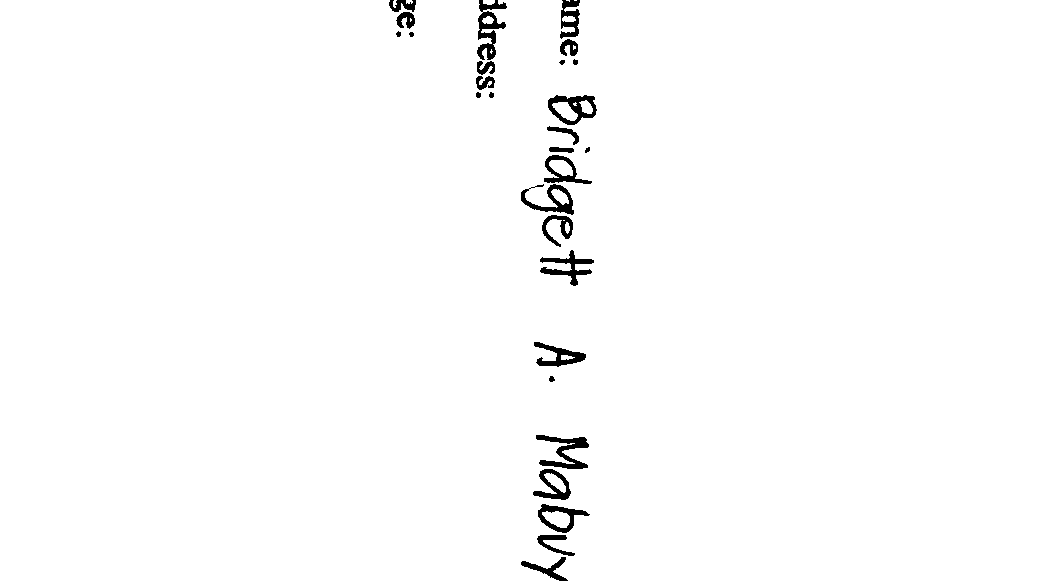 ame: Bridgett A. Mabry
ddress:
ge: